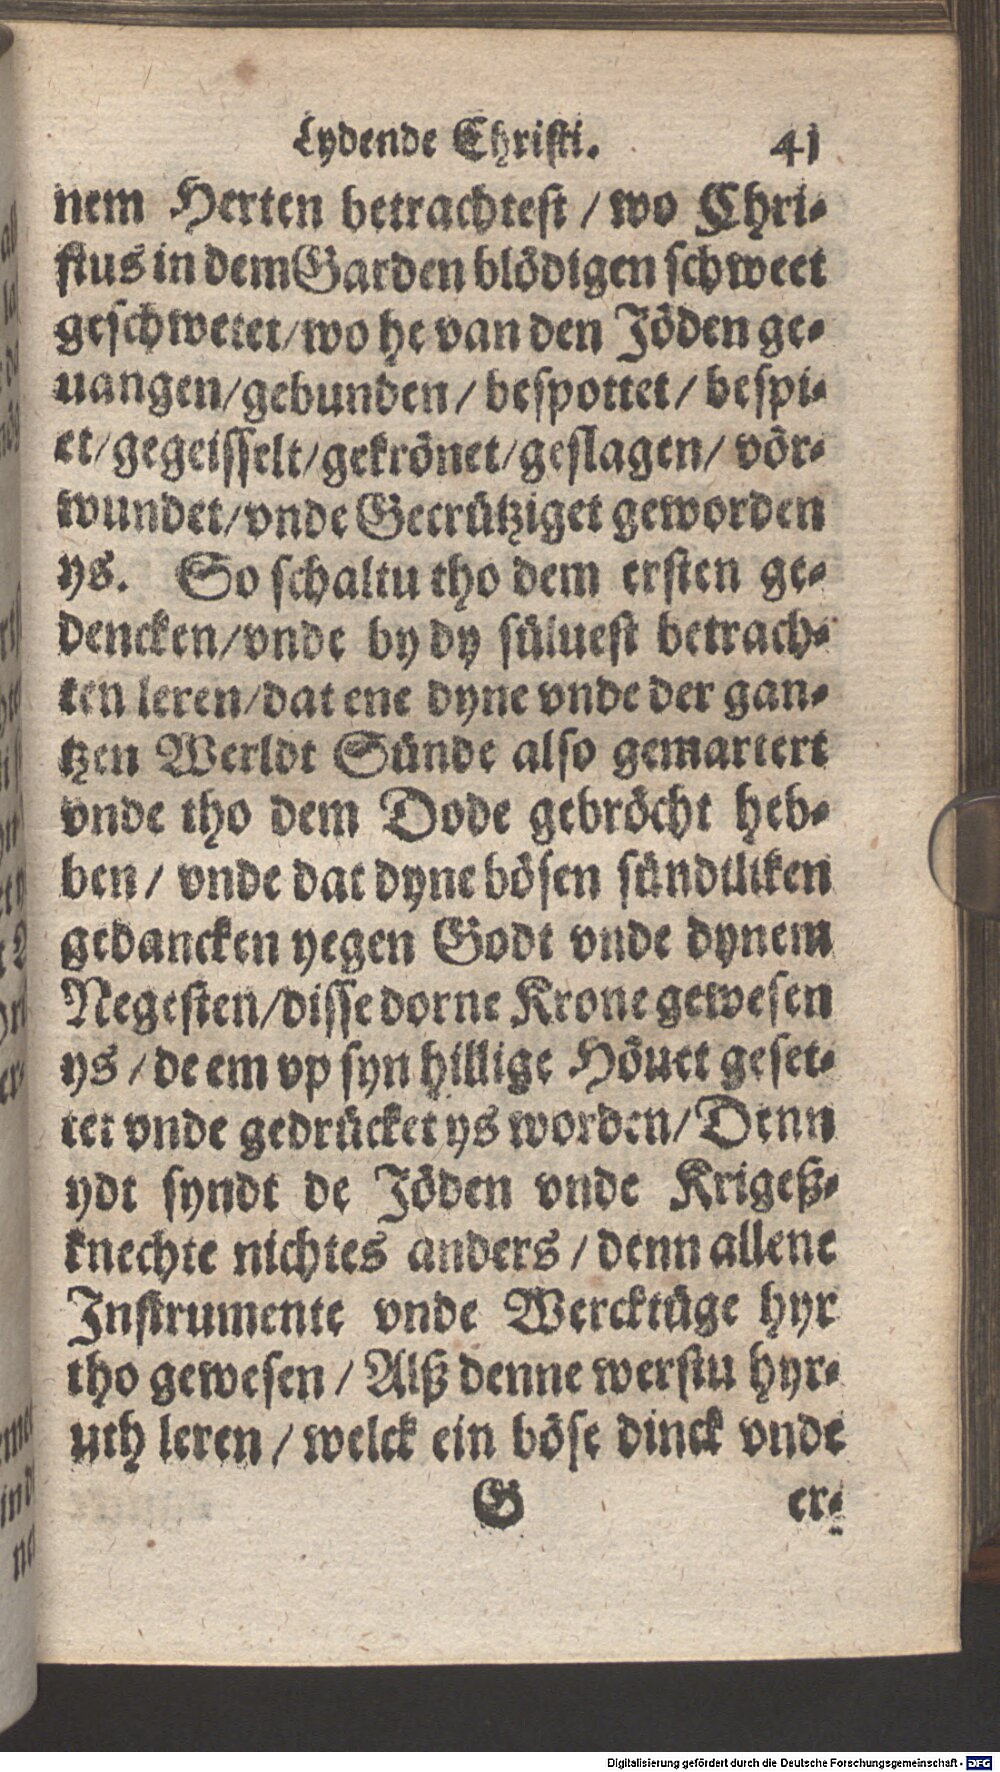 Lydende Christi. 41
nem Herten betrachtest / wo Chri-
stus in dem Garden blödigen schweet
geschwetet/wo he van den Jöden ge-
uangen/gebunden/ bespottet/ bespi-
et/gegeisselt/gekrönet/geslagen/ vör-
wundet/vnde Gecrützigeet geworden
ys. So schaltu tho dem ersten ge-
dencken/vnde by dy süluest betrach-
ten leren/dat ene dyne vnde der gan-
tzen Werldt Sünde also gemartert
vnde tho dem Dode gebröcht heb-
ben / vnde dat dyne bösen sündtliken
gedancken yegen Godt vnde dynem
Negesten/disse dorne Krone gewesen
ys / de em vp syn hillige Höuet geset-
tet vnde gedrücket ys worden/ Denn
ydt syndt de Jöden vnde Krigeß-
knechte nichtes anders / denn allene
Instrumente vnde Wercktüge hyr
tho gewesen / Alß denne werstu hyr-
uth leren / welck ein böse dinck vnde
G er-
Digitalisierung gefördert durch die Deutsche Forschungsgemeinschaft - DFG